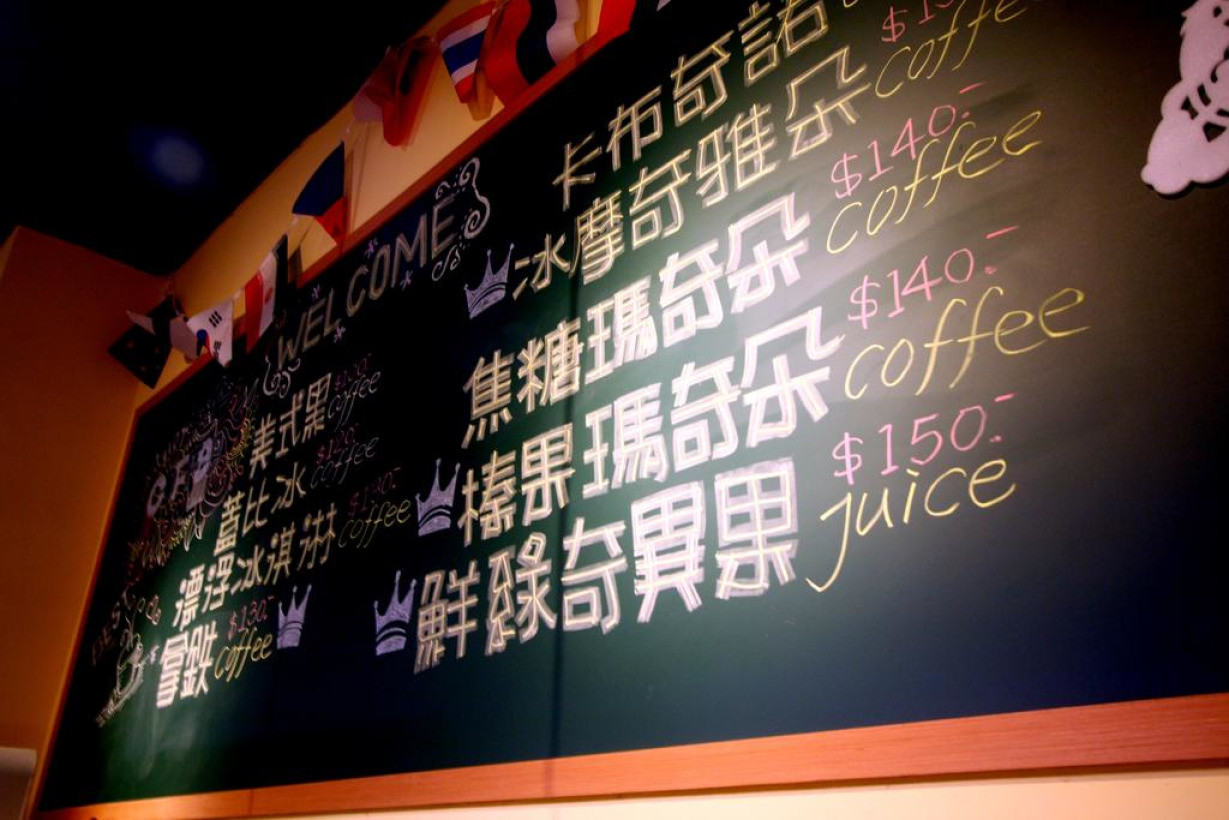 WELCOME
美式黑
coffee
蓋比冰
coffee
漂浮冰淇淋
coffee
拿鉄 $130.-
coffee
卡布奇諾
coffee
冰摩奇雅朵 $140.-
coffee
焦糖瑪奇朵 $140.-
coffee
榛果瑪奇朵 $150.-
鮮綠奇異果 juice